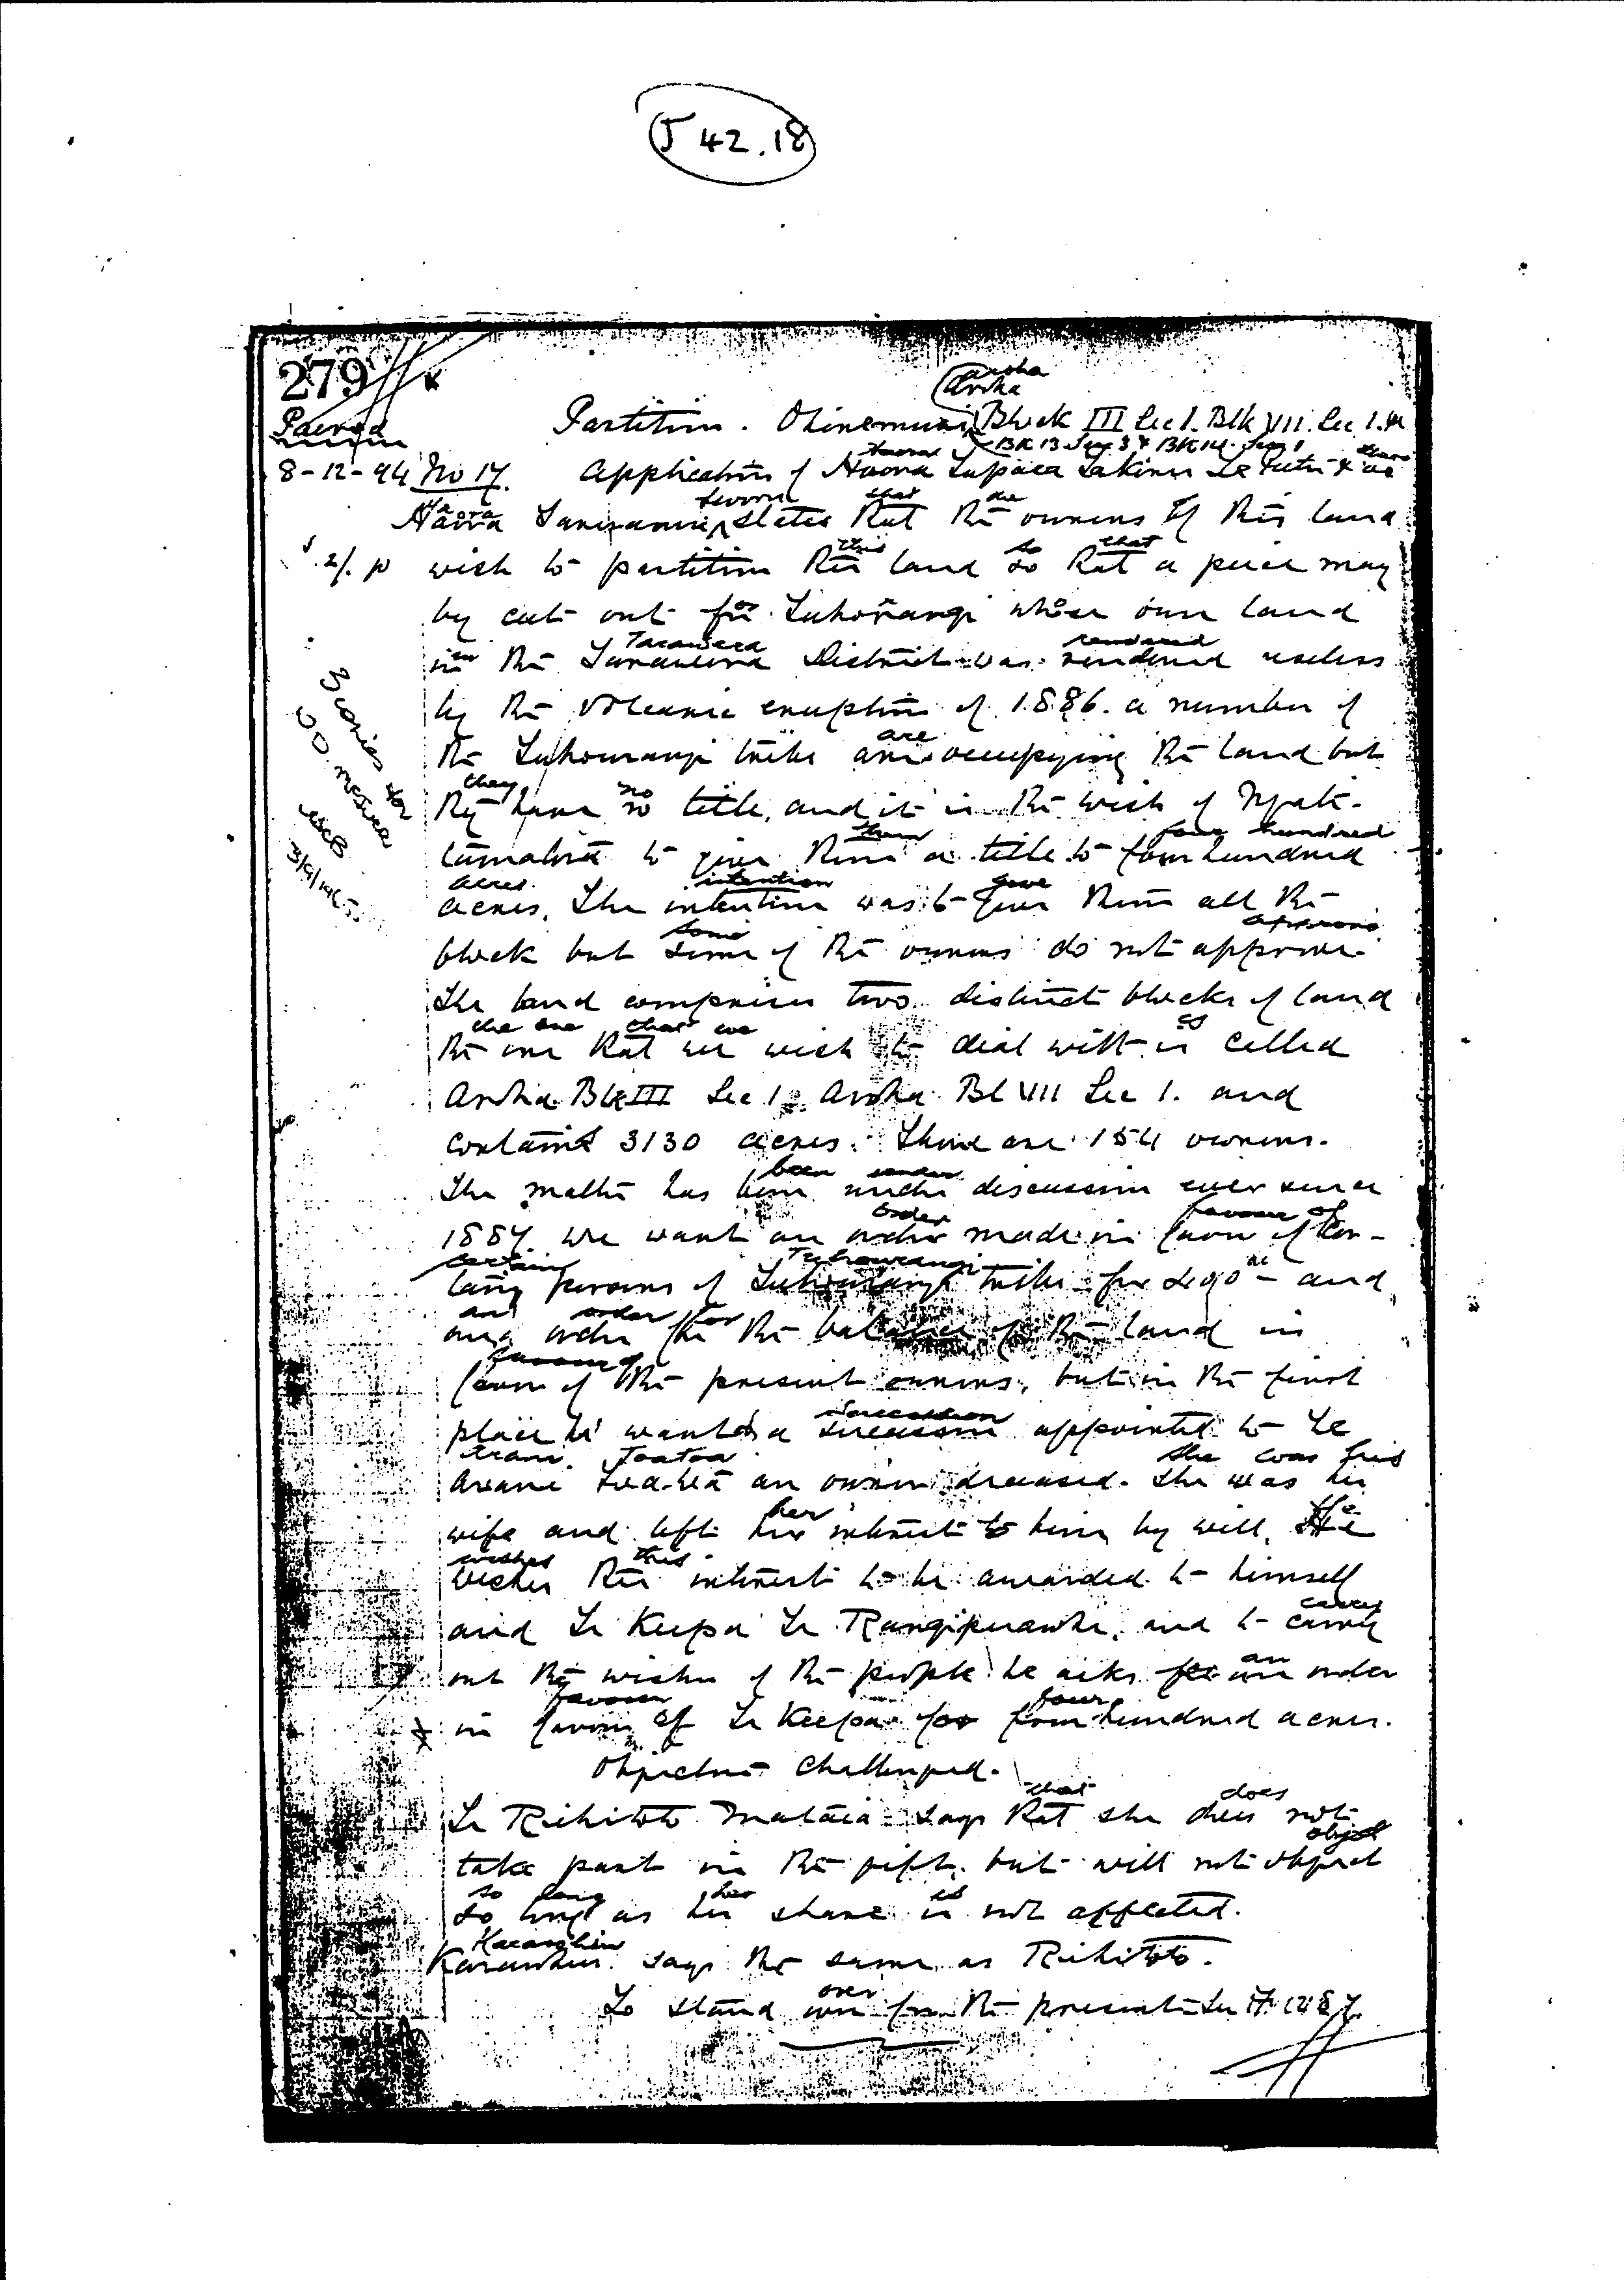 J 42.18
279
Paeroa
Aroha
Aroha
Partition. Ohinemuri Block III Sec 1. Blk VII. Sec 1. &
BK 13 Sec 3 & BK 14 Sec 1
8-12-94 No 17. Application of Haora Tupaea Takinui Te Tutu &
Haora
Haora sworn states that the owners of this land
that the
2/. p wish to partition this land so that a piece may
this so that
by cut out for Tuhorangi whose own land
in the Tarawera District was rendered useless
Tarawera rendered
by the volcanic eruption of 1886. a number of
the Tuhourangi tribe are occupying the land but
are
they have no title, and it is the wish of Ngati-
they no
tamatera to give them a title to four hundred
them four hundred
acres. The intention was to give them all the
acres. intention give
block but some of the owners do not approve.
some approve
The land comprises two distinct blocks of land
the one that we wish to deal with is called
the one that we is
Aroha Blk III Sec 1 Aroha Bl VII Sec 1. and
contains 3130 acres. There are 154 owners.
The matter has been under discussion ever since
been under
1887 we want an order made in favor of cer-
order favour of
tain persons of Tuhourangi tribe for and
certain Tuhourangi
an order for the balance of the land in
and order for
favor of the present owners, but in the first
favour of
place he wants a succession appointed to Te
succession
an owner deceased. She was his
She was his
wife and left her interest to him by will. He
her He
wishes this interest to be awarded to himself
wishes this
and Te Keepa Te Rangipuawhe, and to carry
carry
out the wishes of the people he asks for an order
an
in favour of Te Keepa for four hundred acres.
favour four
Objectors Challenged.
Te Rihitoto Mataia says that she does not
that does
take part in the gift, but will not object
object
so long as her share is not affected.
so long her is
Karauhia says the same as Rihitoto.
To stand over for the present
over
3 copies for
3/9/